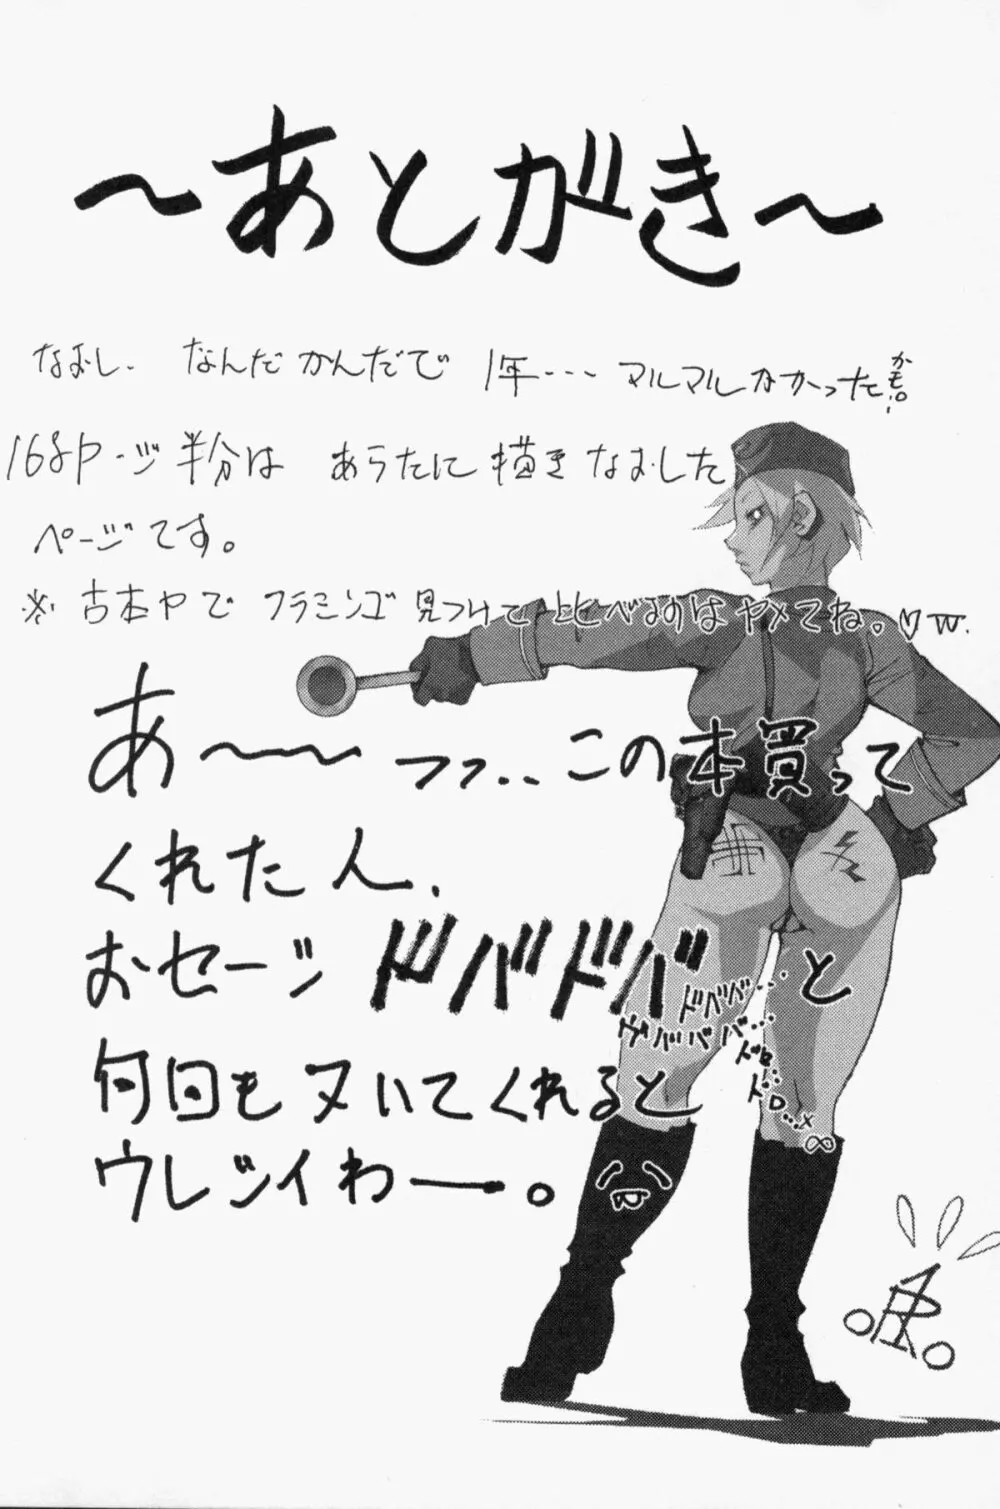 ～あとがき～
なおし、なんだかんだで 1年… マルマルしなかったかも。
168P・ジ半分は あらたに描きなおした
ページです。
※古本ヤで フラミンゴ見つけて 比べるのはヤメてね。♡w.
あ～～ ッフ.. この本買って
くれた人、
おセージ ドバドバ ドババ… と
ヴリバババ…
ドロ…
ドロ…×
∞
何回もヌいてくれると
ウレシイわー。